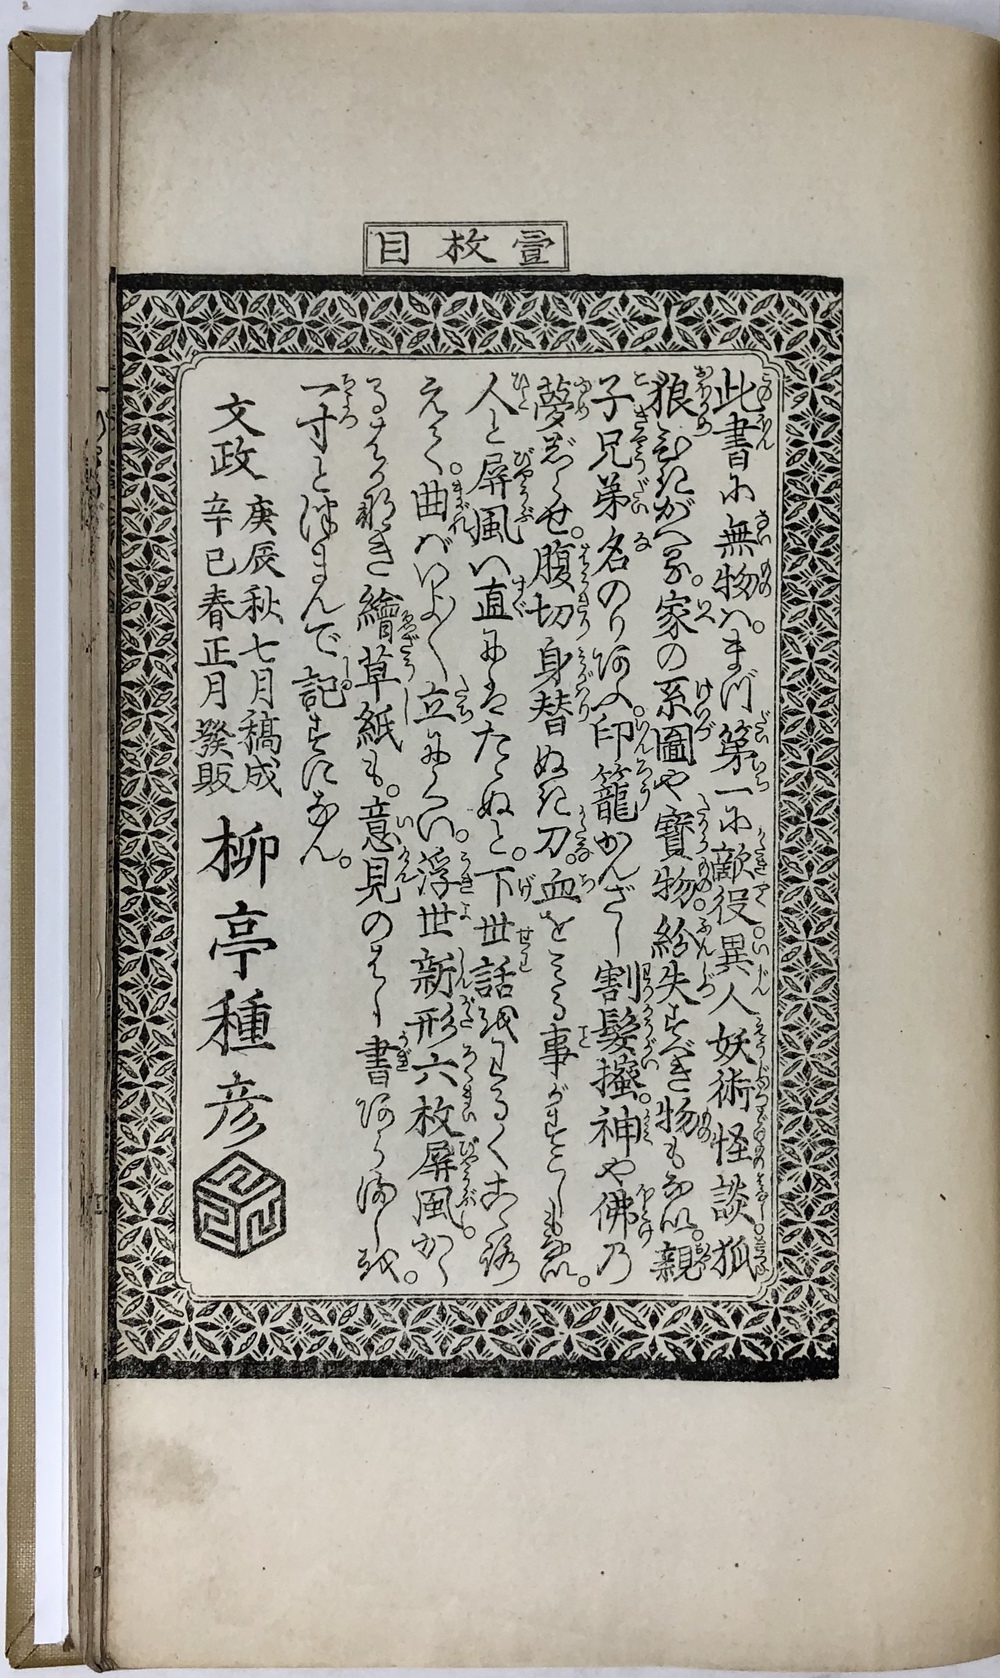 壹枚目
此書に無物ハ。まづ第一に敵役異人妖術怪談狐
狼ひきがへる。家の系圖や寳物。紛失すべき物もなし。親
子兄弟名のりあハ。印籠かんざし割髪掻。神や佛乃
夢まくせ。腹切身替ぬけ刀。血を見る事がすこしもなし。
人と屏風ハ直にはたゝぬと。下世話にわるくこゝろ
えて。曲ばいよく立にくい。浮世新形六枚屏風かく
るはる敷き繪草紙も。意見のはし書あらましを。
一寸とはさんで記すになん。
文政 庚辰秋七月稿成
辛巳春正月發販
柳亭種彦